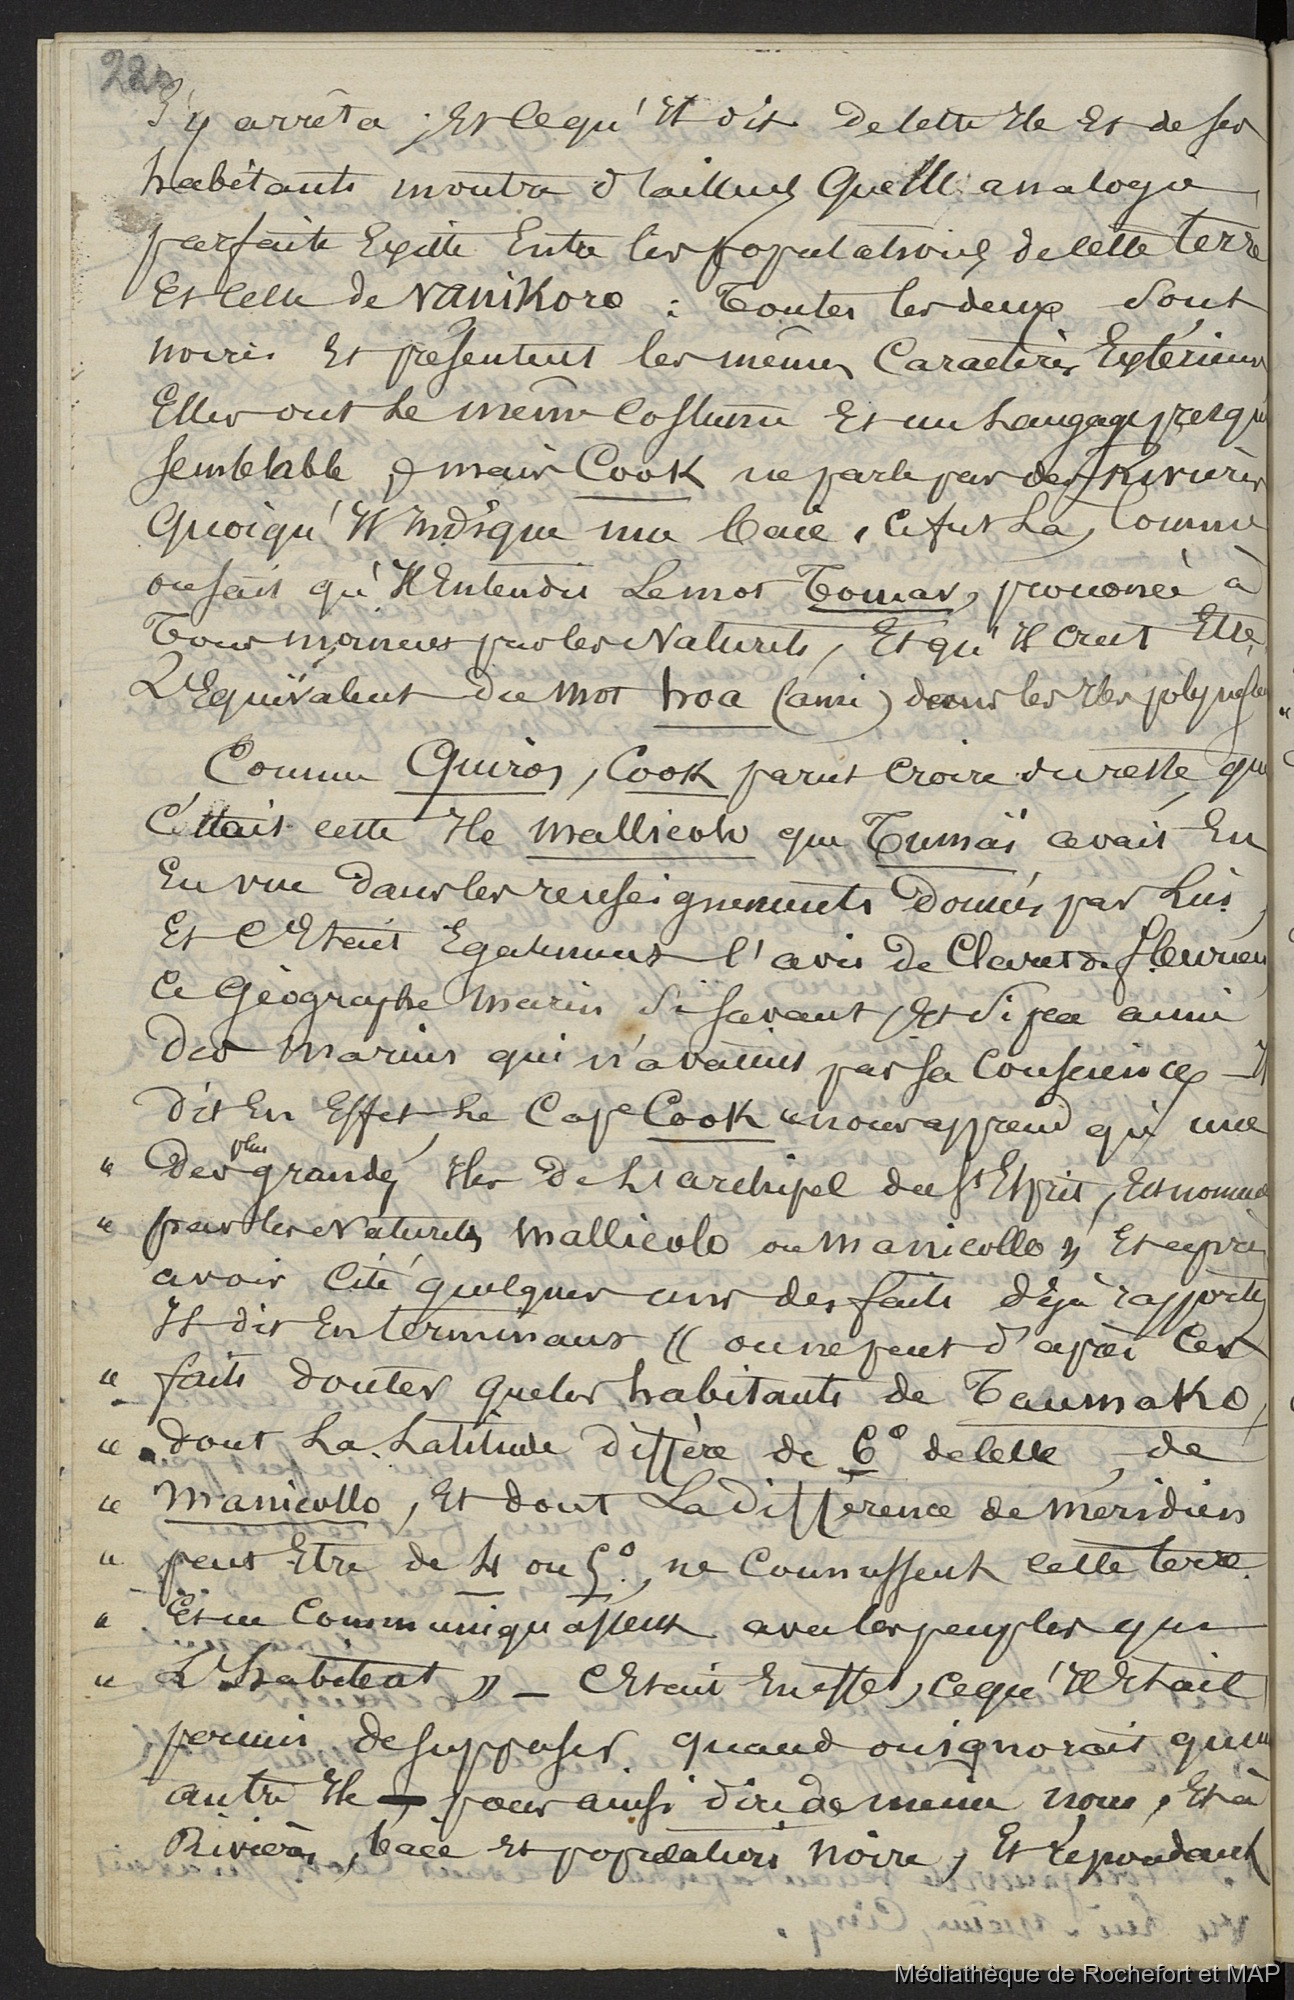 22
S'y arrêta ; Et ce qu'Il dit de cette Ile Et de ses
habitants montra d'ailleurs Quelle analogie
parfaite Existe Entre les populations de cette terre
Et celle de Vanikoro : Toutes les deux sont
noires Et présentent les mêmes Caractères Extérieurs
Elles ont le même Costume Et un Langage presqu
semblable, mais Cook ne parle pas des Rivières
Quoiqu'Il Indique une baie, Ce fut Là, Comme
on sait qu'Il Entendit Le mot Tomar, prononcé à
Tous moments par les Naturels, Et qu'Il crut Etre
L'Equivalent du mot hoa (ami) dans les Iles polynésie
Comme Quiros, Cook parut croire du reste, que
C'était cette Ile Mallicolo que Tumaï avait En
En vue dans les renseignements donnés par Lui,
Et C'Etait Egalement l'avis de Claret de Fleurieu
Ce Géographe marin si savant, Et si peu aimé
Des marins qui n'avaient pas sa Conscience – Il
dit En Effet Le Cape Cook "nous apprend qu'une
" Des plus grandes Iles De L'archipel du St Esprit, Est nommé
" par les Naturels Mallicolo ou Manicollo" Et après
avoir Cité quelques uns des faits déjà rapportés
Il dit En terminant "on ne peut d'après Ces
" faits douter que les habitants de Taumako,
" dont La Latitude diffère de 6° de celle de
" Manicollo, Et dont La Différence de Méridien
" peut Etre de 4 ou 5°, ne Connussent cette terre
" Et ne Communiquassent avec les peuples qui
" L'habitent" – C'Etait En effet, ce qu'Il Etait
permis de supposer quand on ignorait qu'une
autre Ile pour ainsi dire de même nom, Et à
Rivières, baie Et population Noire, Et répondant
Médiathèque de Rochefort et MAP